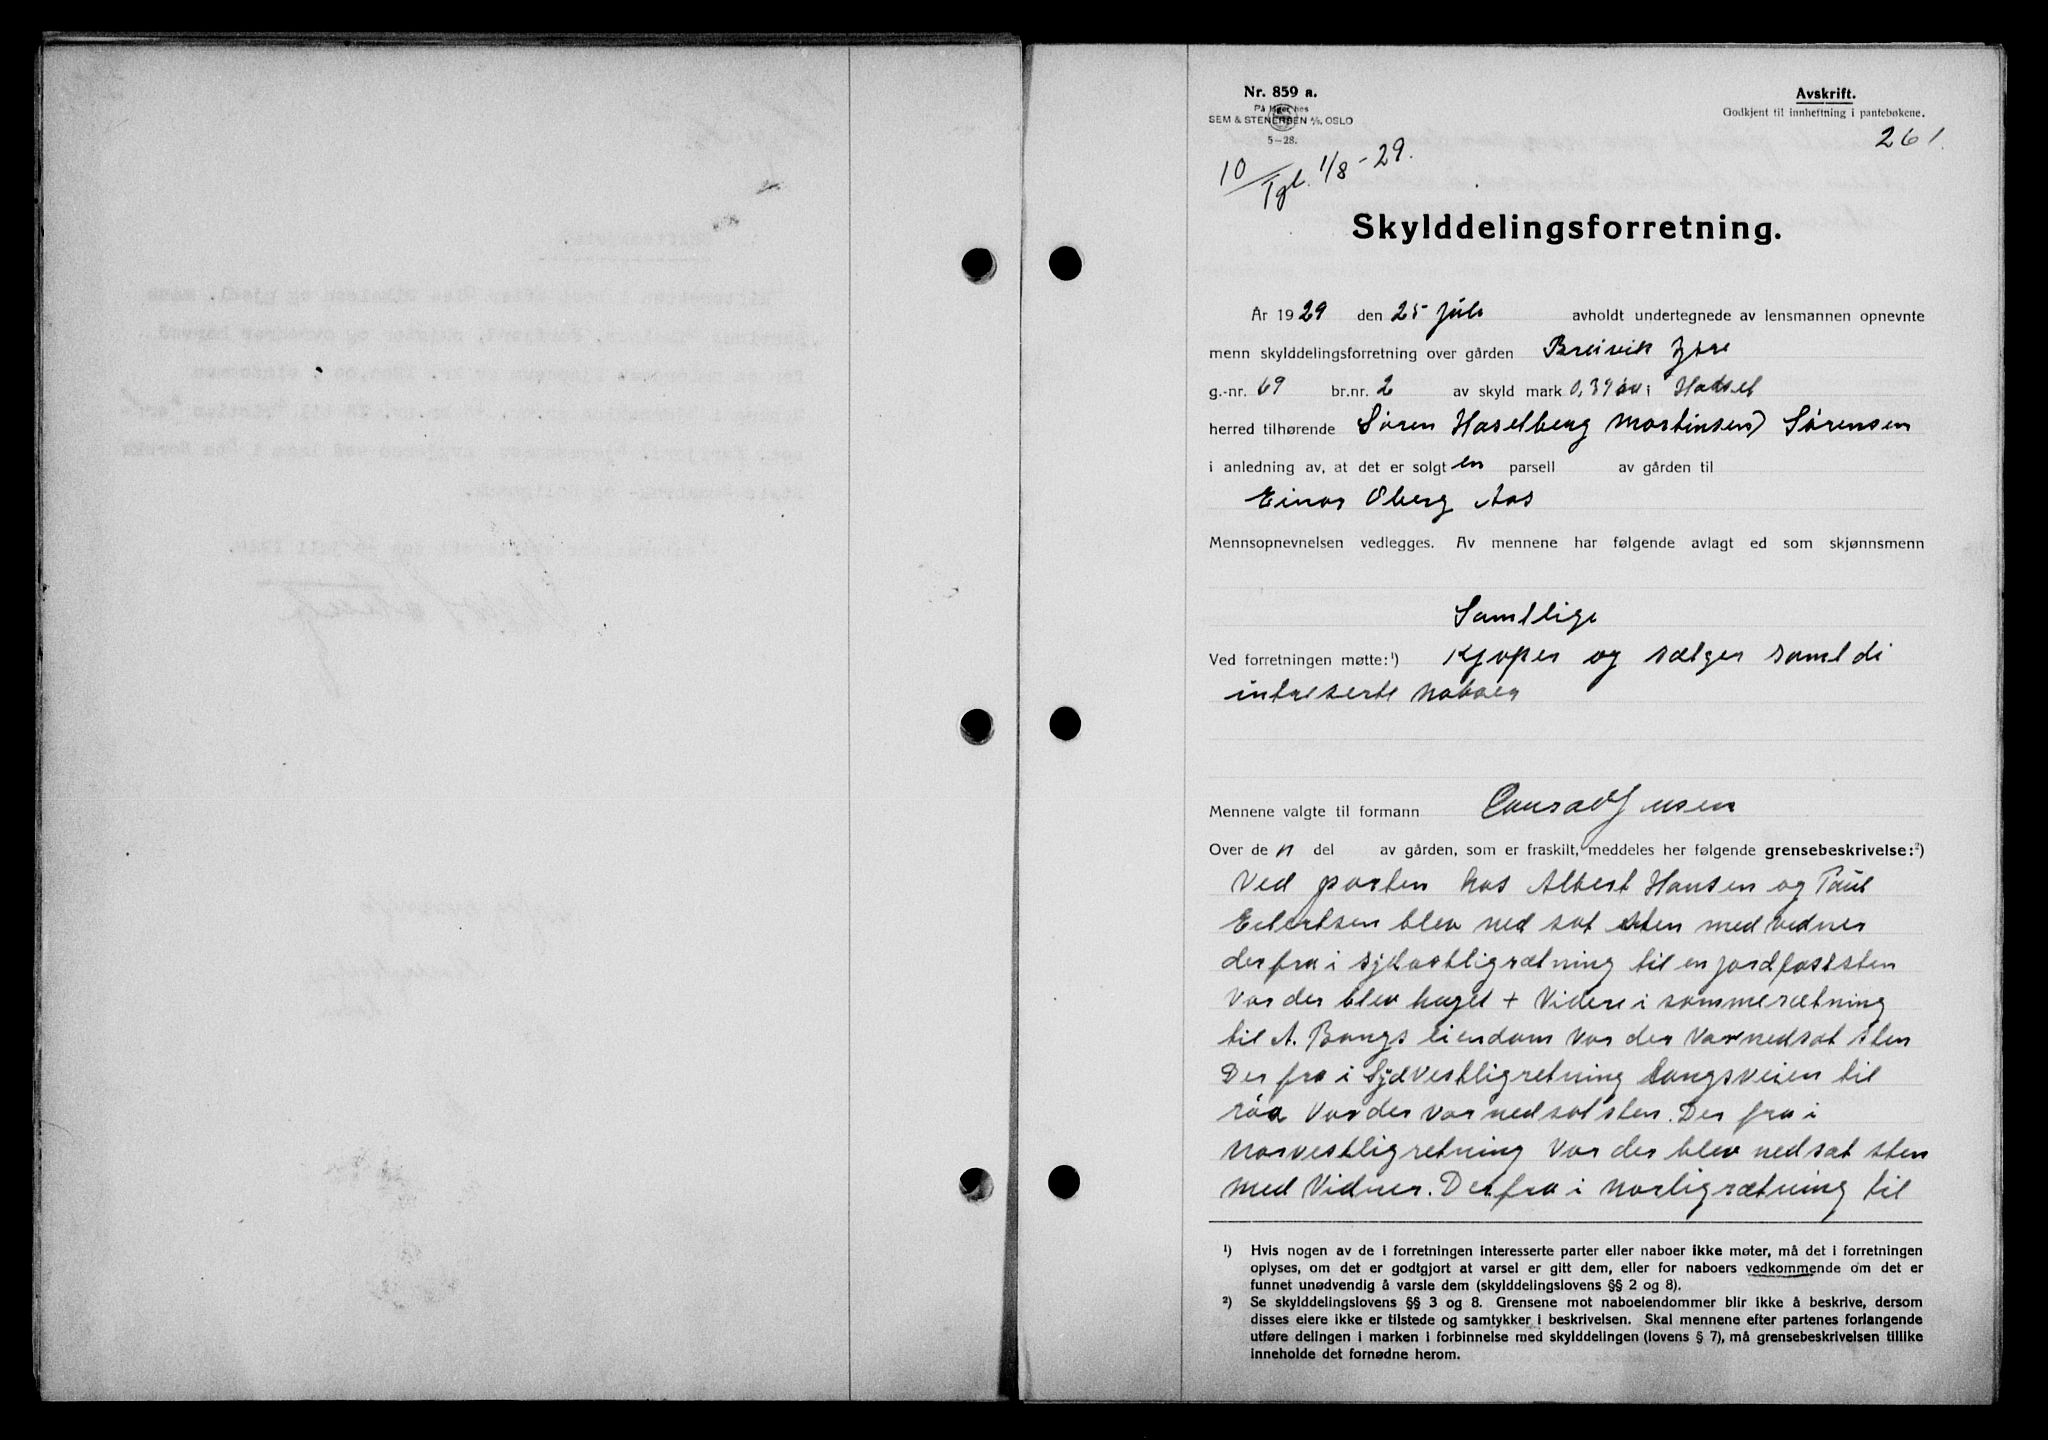 Nr. 859 a.
På lager hos
SEM & STENERSEN A/S, OSLO
5-28.
Avskrift.
Godkjent til innheftning i pantebøkene.
261
10/Tgl. 1/8-29.
Skylddelingsforretning.
År 1929 den 25 juli avholdt undertegnede av lensmannen opnevnte
menn skylddelingsforretning over gården Breivik
g.-nr. 69 br.nr. 2 av skyld mark 0,39 i Hadsel
herred tilhørende Søren Haselberg Martinsen) Sørensen
i anledning av, at det er solgt en parsell av gården til
Einar Oberg Aas
Mennsopnevnelsen vedlegges. Av mennene har følgende avlagt ed som skjønnsmenn
Samtlige
Ved forretningen møtte:¹) Kjøper og sælger samt di
intreserte naboer
Mennene valgte til formann Conrad Jensen
Over den del av gården, som er fraskilt, meddeles her følgende grensebeskrivelse:²)
Ved porten hos Albert Hansen og Paul
Eilertsen blev ned sat sten med vidner
derfra i sydostligrætning til en jordfaststen
Vor der blev huget + Videre i sammerætning
til A. Bangs eiendom Vor der Varnedsat sten
Der fra i Sydvestligretning langsveien til
råa Vor der var nedsat sten. Der fra i
norvestligretning Vor der blev nedsat sten
med Vidner. Der fra i norligrætning til
¹) Hvis nogen av de i forretningen interesserte parter eller naboer ikke møter, må det i forretningen
oplyses, om det er godtgjort at varsel er gitt dem, eller for naboers vedkommende om det er
funnet unødvendig å varsle dem (skylddelingslovens §§ 2 og 8).
²) Se skylddelingslovens §§ 3 og 8. Grensene mot naboeiendommer blir ikke å beskrive, dersom
disses eiere ikke er tilstede og samtykker i beskrivelsen. Skal mennene efter partenes forlangende
utføre delingen i marken i forbinnelse med skylddelingen (lovens § 7), må grensebeskrivelsen tillike
inneholde det fornødne herom.